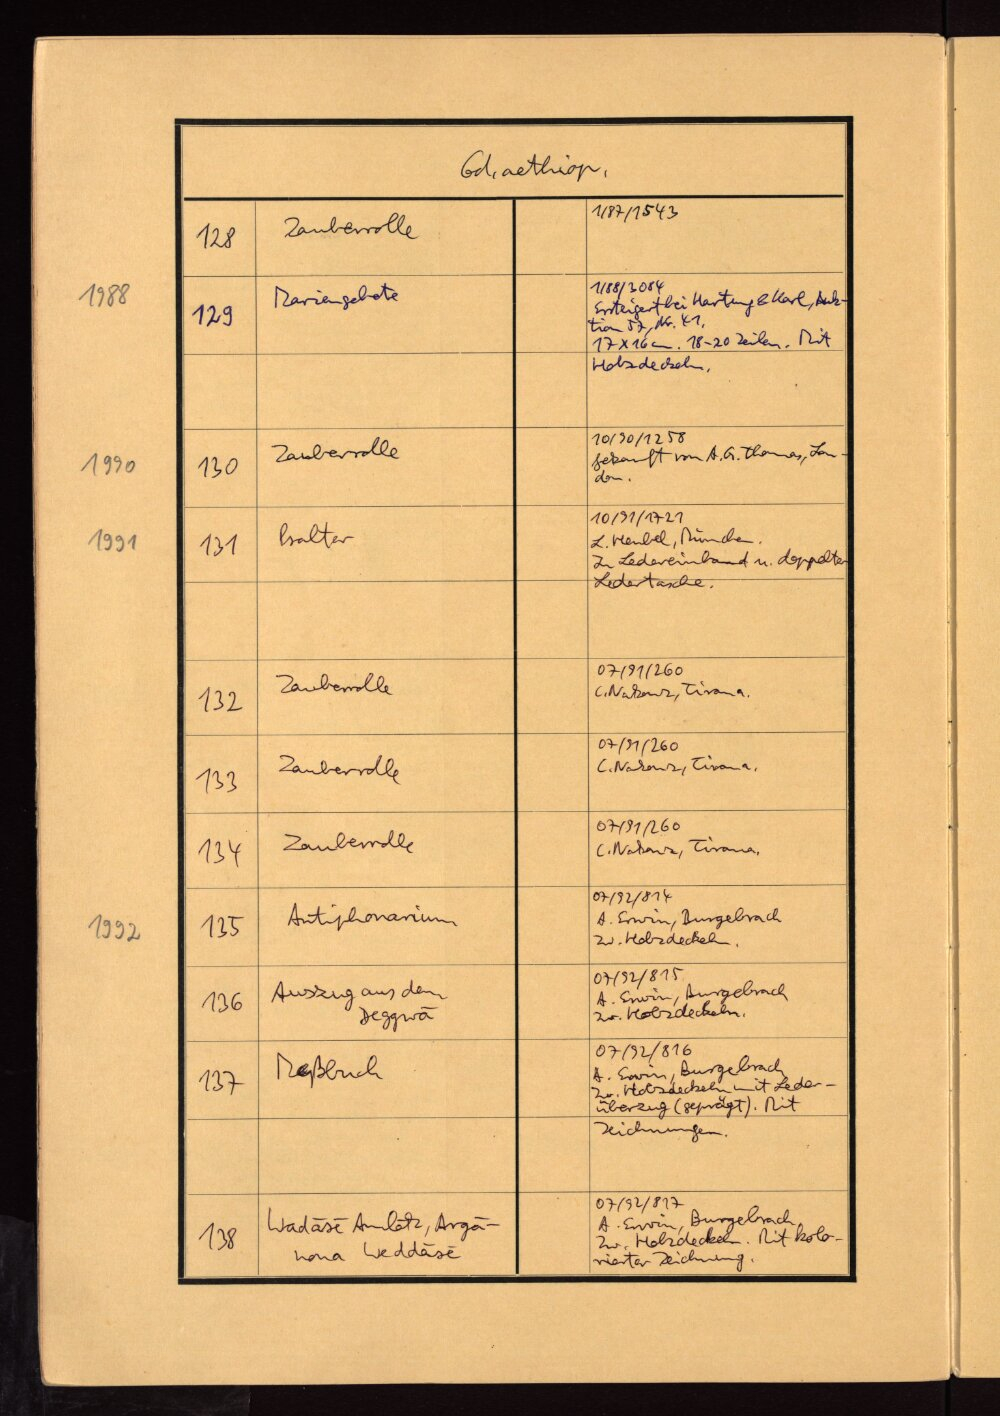 Cod. aethiop.
128 Zauberrolle 1/87/1543
1988
129 Mariengebete 1/88/3084
Ersteigert bei Hartung & Karl, Auk-
tion 57, Nr. 41.
17 x 16 cm. 18-20 Zeilen. Mit
Holzdeckeln.
1990
130 Zauberrolle 10/90/1258
gekauft von A. G. Thomas, Lon-
don.
1991
131 Psalter 10/91/1721
L. München.
In Ledereinband u. doppelter
Ledertasche.
132 Zauberrolle 07/91/260
C. Tirana.
133 Zauberrolle 07/91/260
C. Tirana.
134 Zauberrolle 07/91/260
C. Tirana.
1992
135 Antiphonarium 07/92/814
A. Erwin, Burgebrach
Zw. Holzdeckeln.
136 Auszug aus dem
Deggwā
07/92/815
A. Erwin, Burgebrach
Zw. Holzdeckeln.
137 Meßbuch 07/92/816
A. Erwin, Burgebrach
Zw. Holzdeckeln mit Leder-
überzug (geprägt). Mit
Zeichnungen.
138 Wadāsē Amlāk, Argā-
nona Weddāsē
07/92/817
A. Erwin, Burgebrach
Zw. Holzdeckeln. Mit kolo-
rierter Zeichnung.